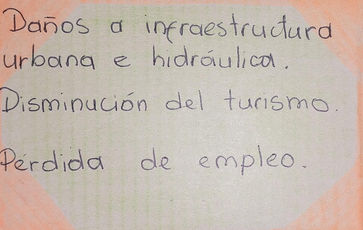 Daños a infraestructura
urbana e hidráulica.
Disminución del turismo.
Pérdida de empleo.